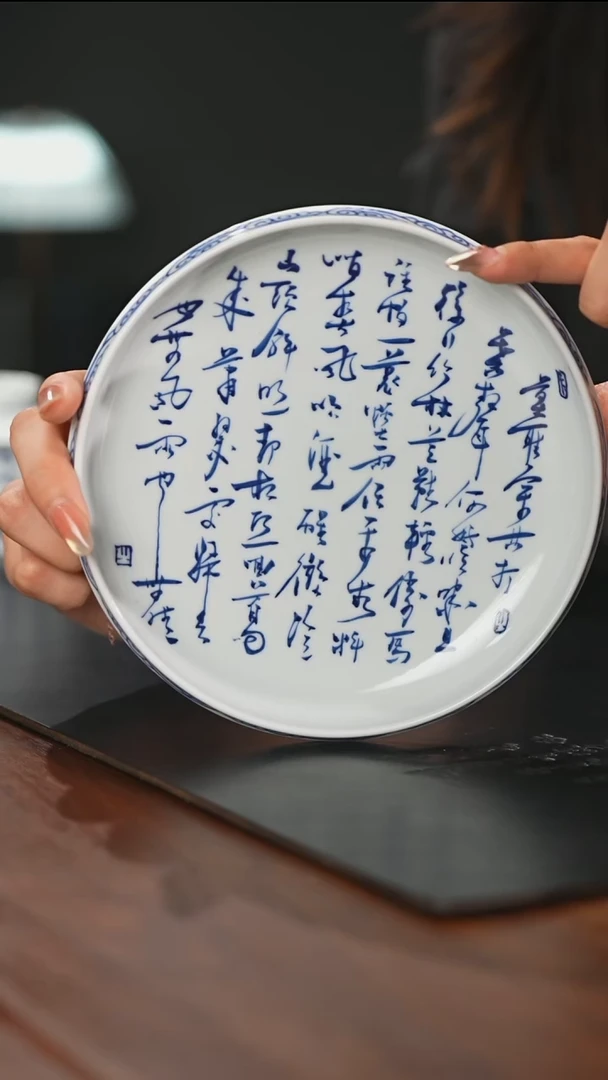 莫聽穿林打
葉聲何妨吟嘯且
徐行竹杖芒鞋輕勝馬
誰怕一蓑煙雨任平生料
峭春風吹酒醒微冷
山頭斜照却相迎回首向
來蕭瑟處歸去
也無風雨也無晴